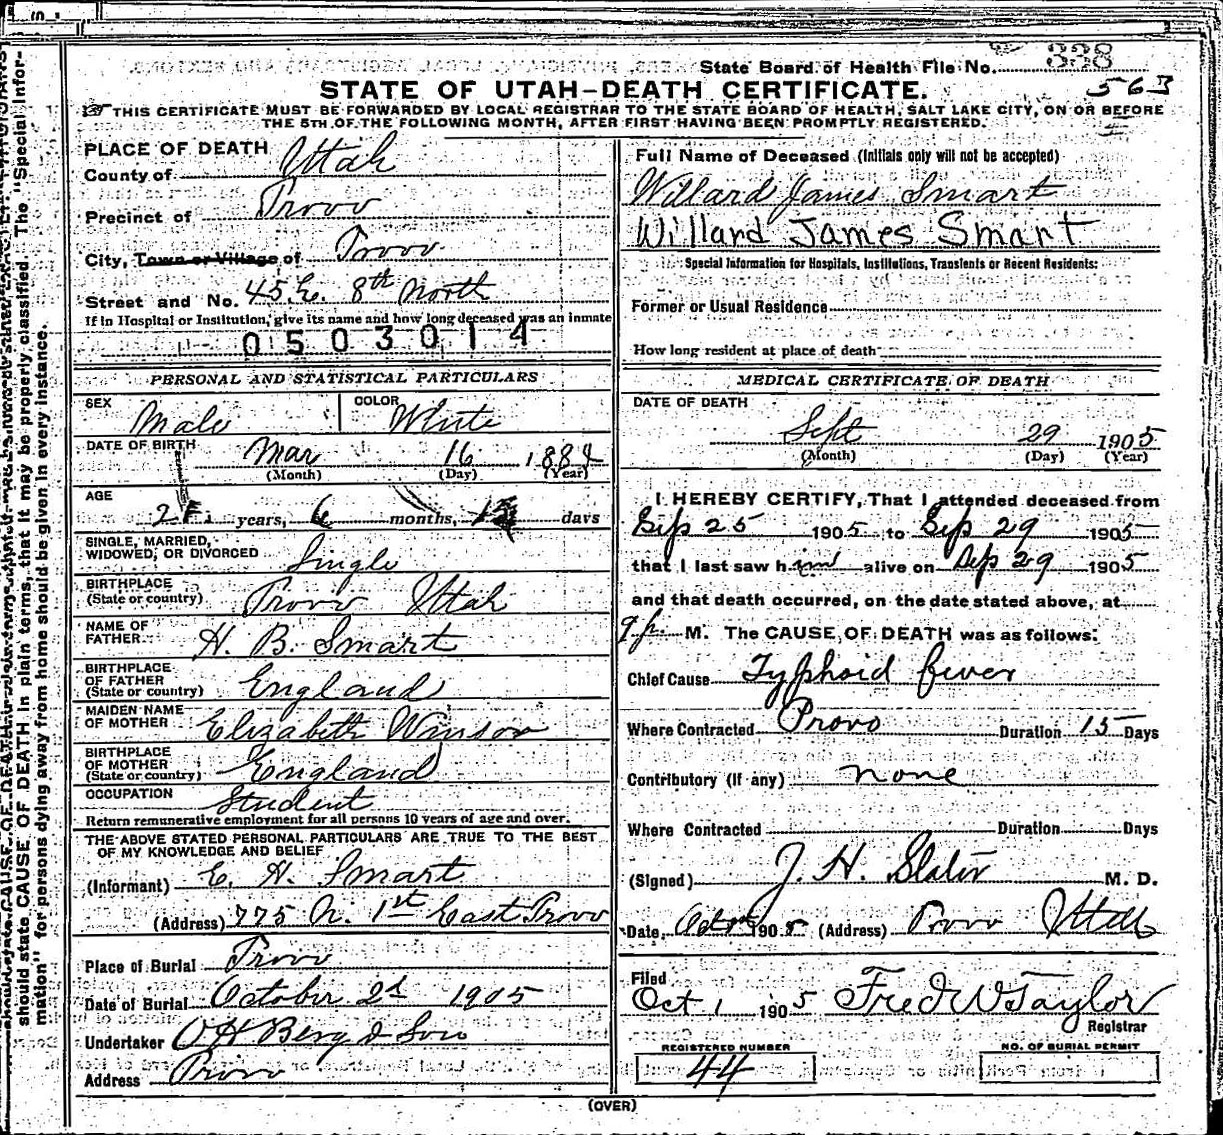 State Board of Health File No. 338
563
STATE OF UTAH-DEATH CERTIFICATE.
THIS CERTIFICATE MUST BE FORWARDED BY LOCAL REGISTRAR TO THE STATE BOARD OF HEALTH, SALT LAKE CITY, ON OR BEFORE
THE 5TH OF THE FOLLOWING MONTH, AFTER FIRST HAVING BEEN PROMPTLY REGISTERED.
PLACE OF DEATH
County of Utah
Precinct of Provo
City, Town or Village of Provo
Street and No. 45 E. 8th North
If in Hospital or Institution, give its name and how long deceased was an inmate
0503014
PERSONAL AND STATISTICAL PARTICULARS
SEX Male COLOR White
DATE OF BIRTH Mar 16 1884
(Month) (Day) (Year)
AGE
21 years, 6 months, 13 days
SINGLE, MARRIED,
WIDOWED, OR DIVORCED Single
BIRTHPLACE
(State or country) Provo Utah
NAME OF
FATHER H. B. Smart
BIRTHPLACE
OF FATHER
(State or country) England
MAIDEN NAME
OF MOTHER Elizabeth Winsor
BIRTHPLACE
OF MOTHER
(State or country) England
OCCUPATION Student
Return remunerative employment for all persons 10 years of age and over.
THE ABOVE STATED PERSONAL PARTICULARS ARE TRUE TO THE BEST
OF MY KNOWLEDGE AND BELIEF
(Informant) E. H. Smart
(Address) 775 N. 1st East Provo
Place of Burial Provo
Date of Burial October 2d 1905
Undertaker O H Berg & Son
Address Provo
Full Name of Deceased (Initials only will not be accepted)
Willard James Smart
Willard James Smart
Special Information for Hospitals, Institutions, Transients or Recent Residents:
Former or Usual Residence
How long resident at place of death
MEDICAL CERTIFICATE OF DEATH
DATE OF DEATH
Sept 29 1905
(Month) (Day) (Year)
I HEREBY CERTIFY, That I attended deceased from
Sep 25 1905 to Sep 29 1905
that I last saw him alive on Sep 29 1905
and that death occurred, on the date stated above, at
9 p. M. The CAUSE OF DEATH was as follows:
Chief Cause Typhoid fever
Where Contracted Provo Duration 15 Days
Contributory (if any) none
Where Contracted Duration Days
(Signed) J. H. Slater M. D.
Date, Oct 1905 (Address) Provo Utah
Filed
Oct 1 1905 Fred W Taylor
Registrar
REGISTERED NUMBER
44
NO. OF BURIAL PERMIT
(OVER)
should state CAUSE OF DEATH in plain terms, that it may be properly classified. The "Special Infor-
mation" for persons dying away from home should be given in every instance.